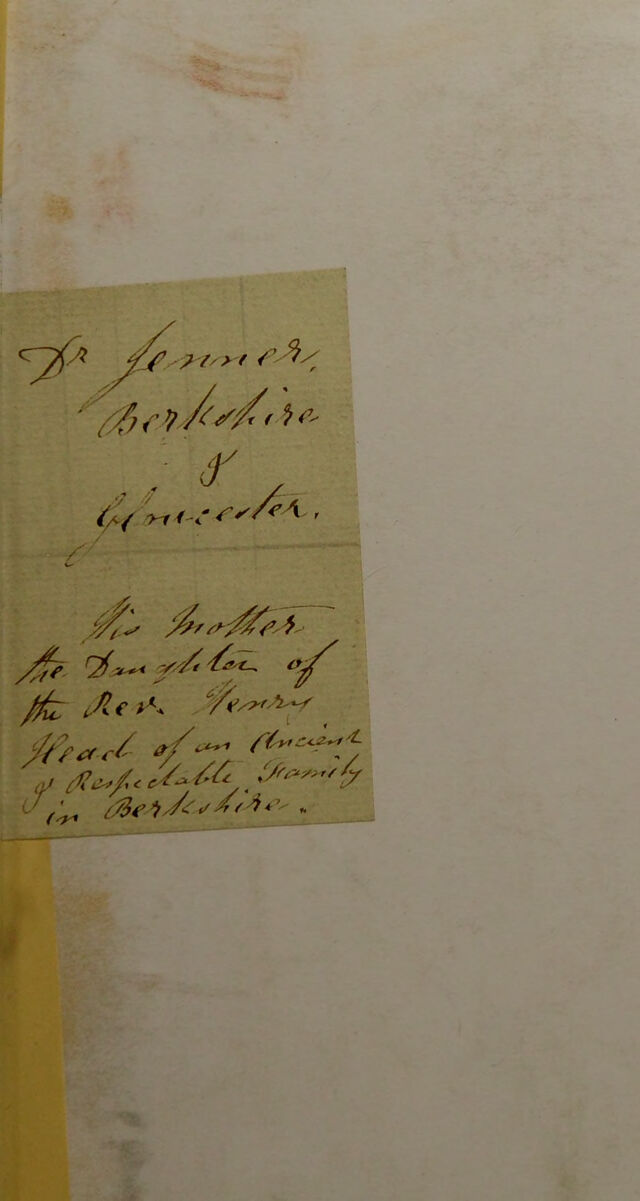 Dr Jenner.
Berkshire
&
Gloucester.
His Mother
the Daughter of
the Rev. Henry
Head of an Ancient
& Respectable Family
in Berkshire.